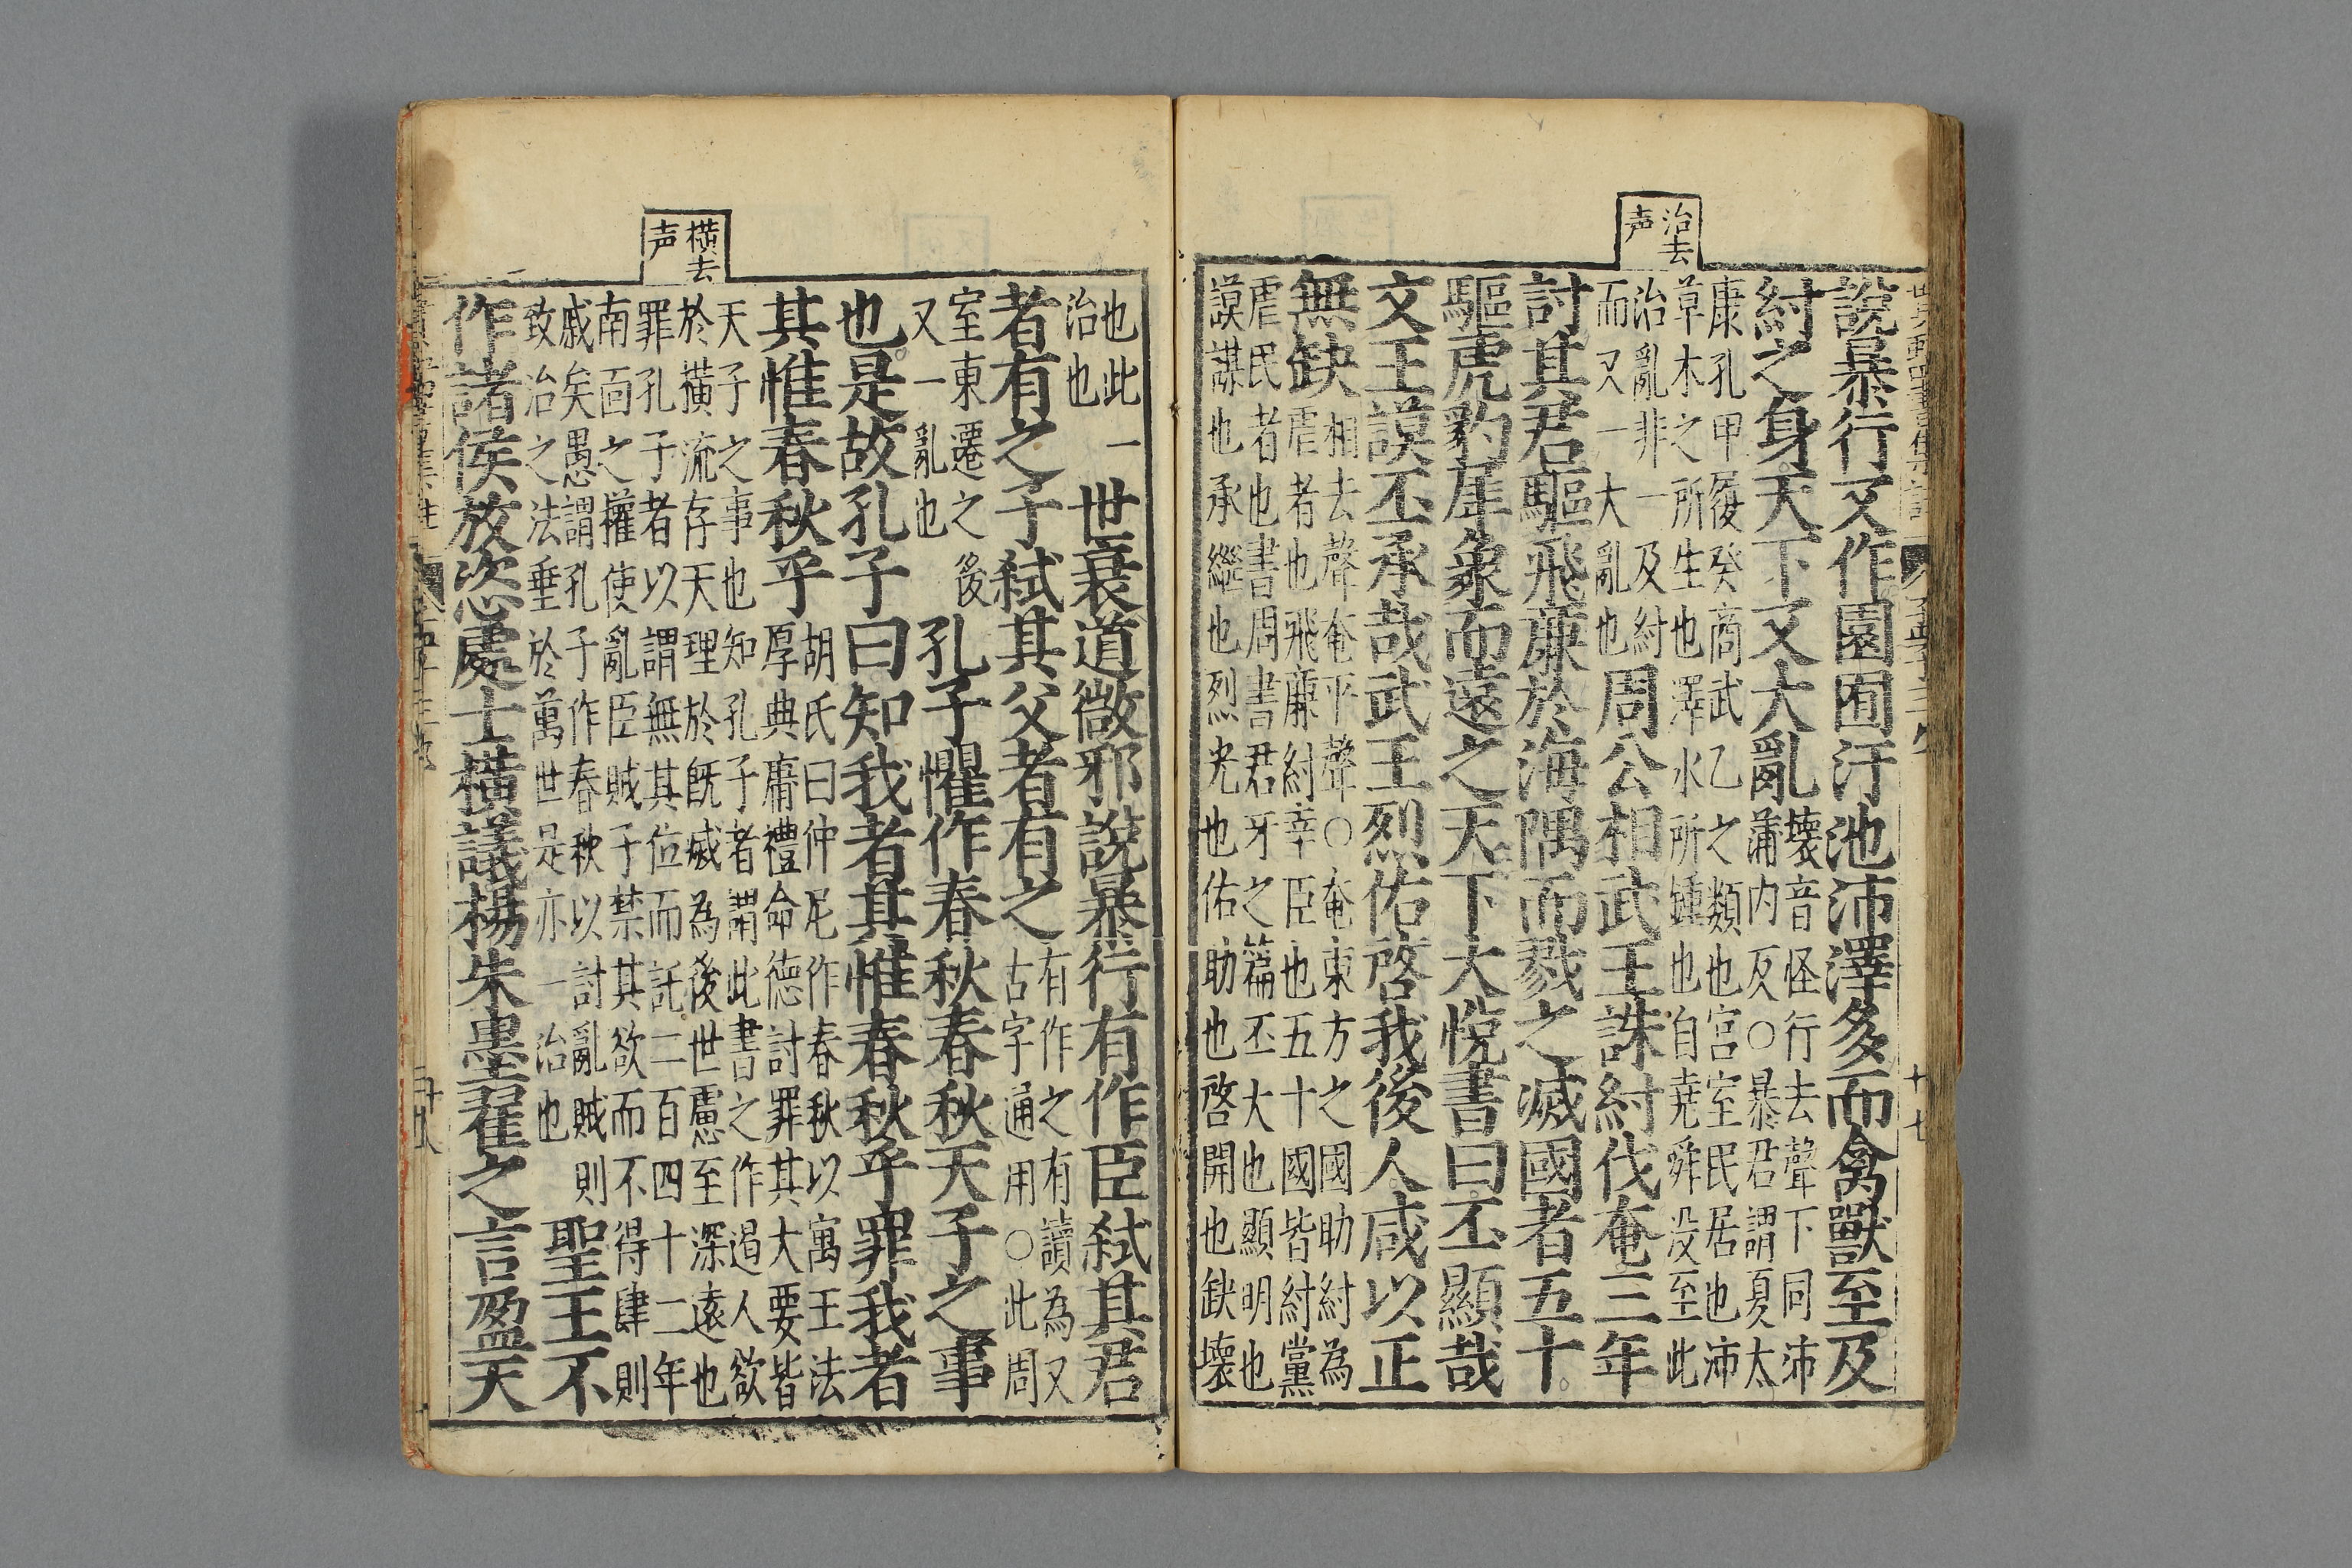 治去
声
說暴行又作園囿汙池沛澤多而禽獸至及
紂之身天下又大亂
壞音怪行去聲下同沛
蒲内反○暴君謂夏太
康孔甲履癸商武乙之類也宮室民居也沛
草木之所生也澤水所鍾也自堯舜没至此
治亂非一及紂
而又一大亂也
周公相武王誅紂伐奄三年
討其君驅飛廉於海隅而戮之滅國者五十
驅虎豹犀象而遠之天下大悅書曰丕顯哉
文王謨丕承哉武王烈佑啓我後人咸以正
無缺
相去聲奄平聲○奄東方之國助紂為
虐者也飛廉紂幸臣也五十國皆紂黨
虐民者也書周書君牙之篇丕大也顯明也
謨謀也承繼也烈光也佑助也啓開也缺壞
十七
橫去
声
也此一
治也
世衰道微邪說暴行有作臣弒其君
者有之子弒其父者有之
有作之有讀為又
古字通用○此周
室東遷之後
又一亂也
孔子懼作春秋春秋天子之事
也是故孔子曰知我者其惟春秋乎罪我者
其惟春秋乎
胡氏曰仲尼作春秋以寓王法
厚典庸禮命德討罪其大要皆
天子之事也知孔子者謂此書之作遏人欲
於橫流存天理於既滅為後世慮至深遠也
罪孔子者以謂無其位而託二百四十二年
南面之權使亂臣賊子禁其欲而不得肆則
戚矣愚謂孔子作春秋以討亂賊則
致治之法垂於萬世是亦一治也
聖王不
作諸侯放恣處士橫議楊朱墨翟之言盈天